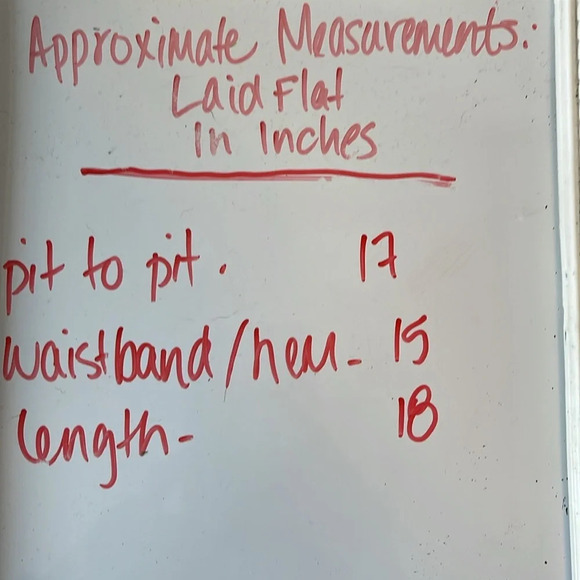 Approximate Measurements:
Laid Flat
In Inches
pit to pit. 17
waistband/hem- 15
length- 18